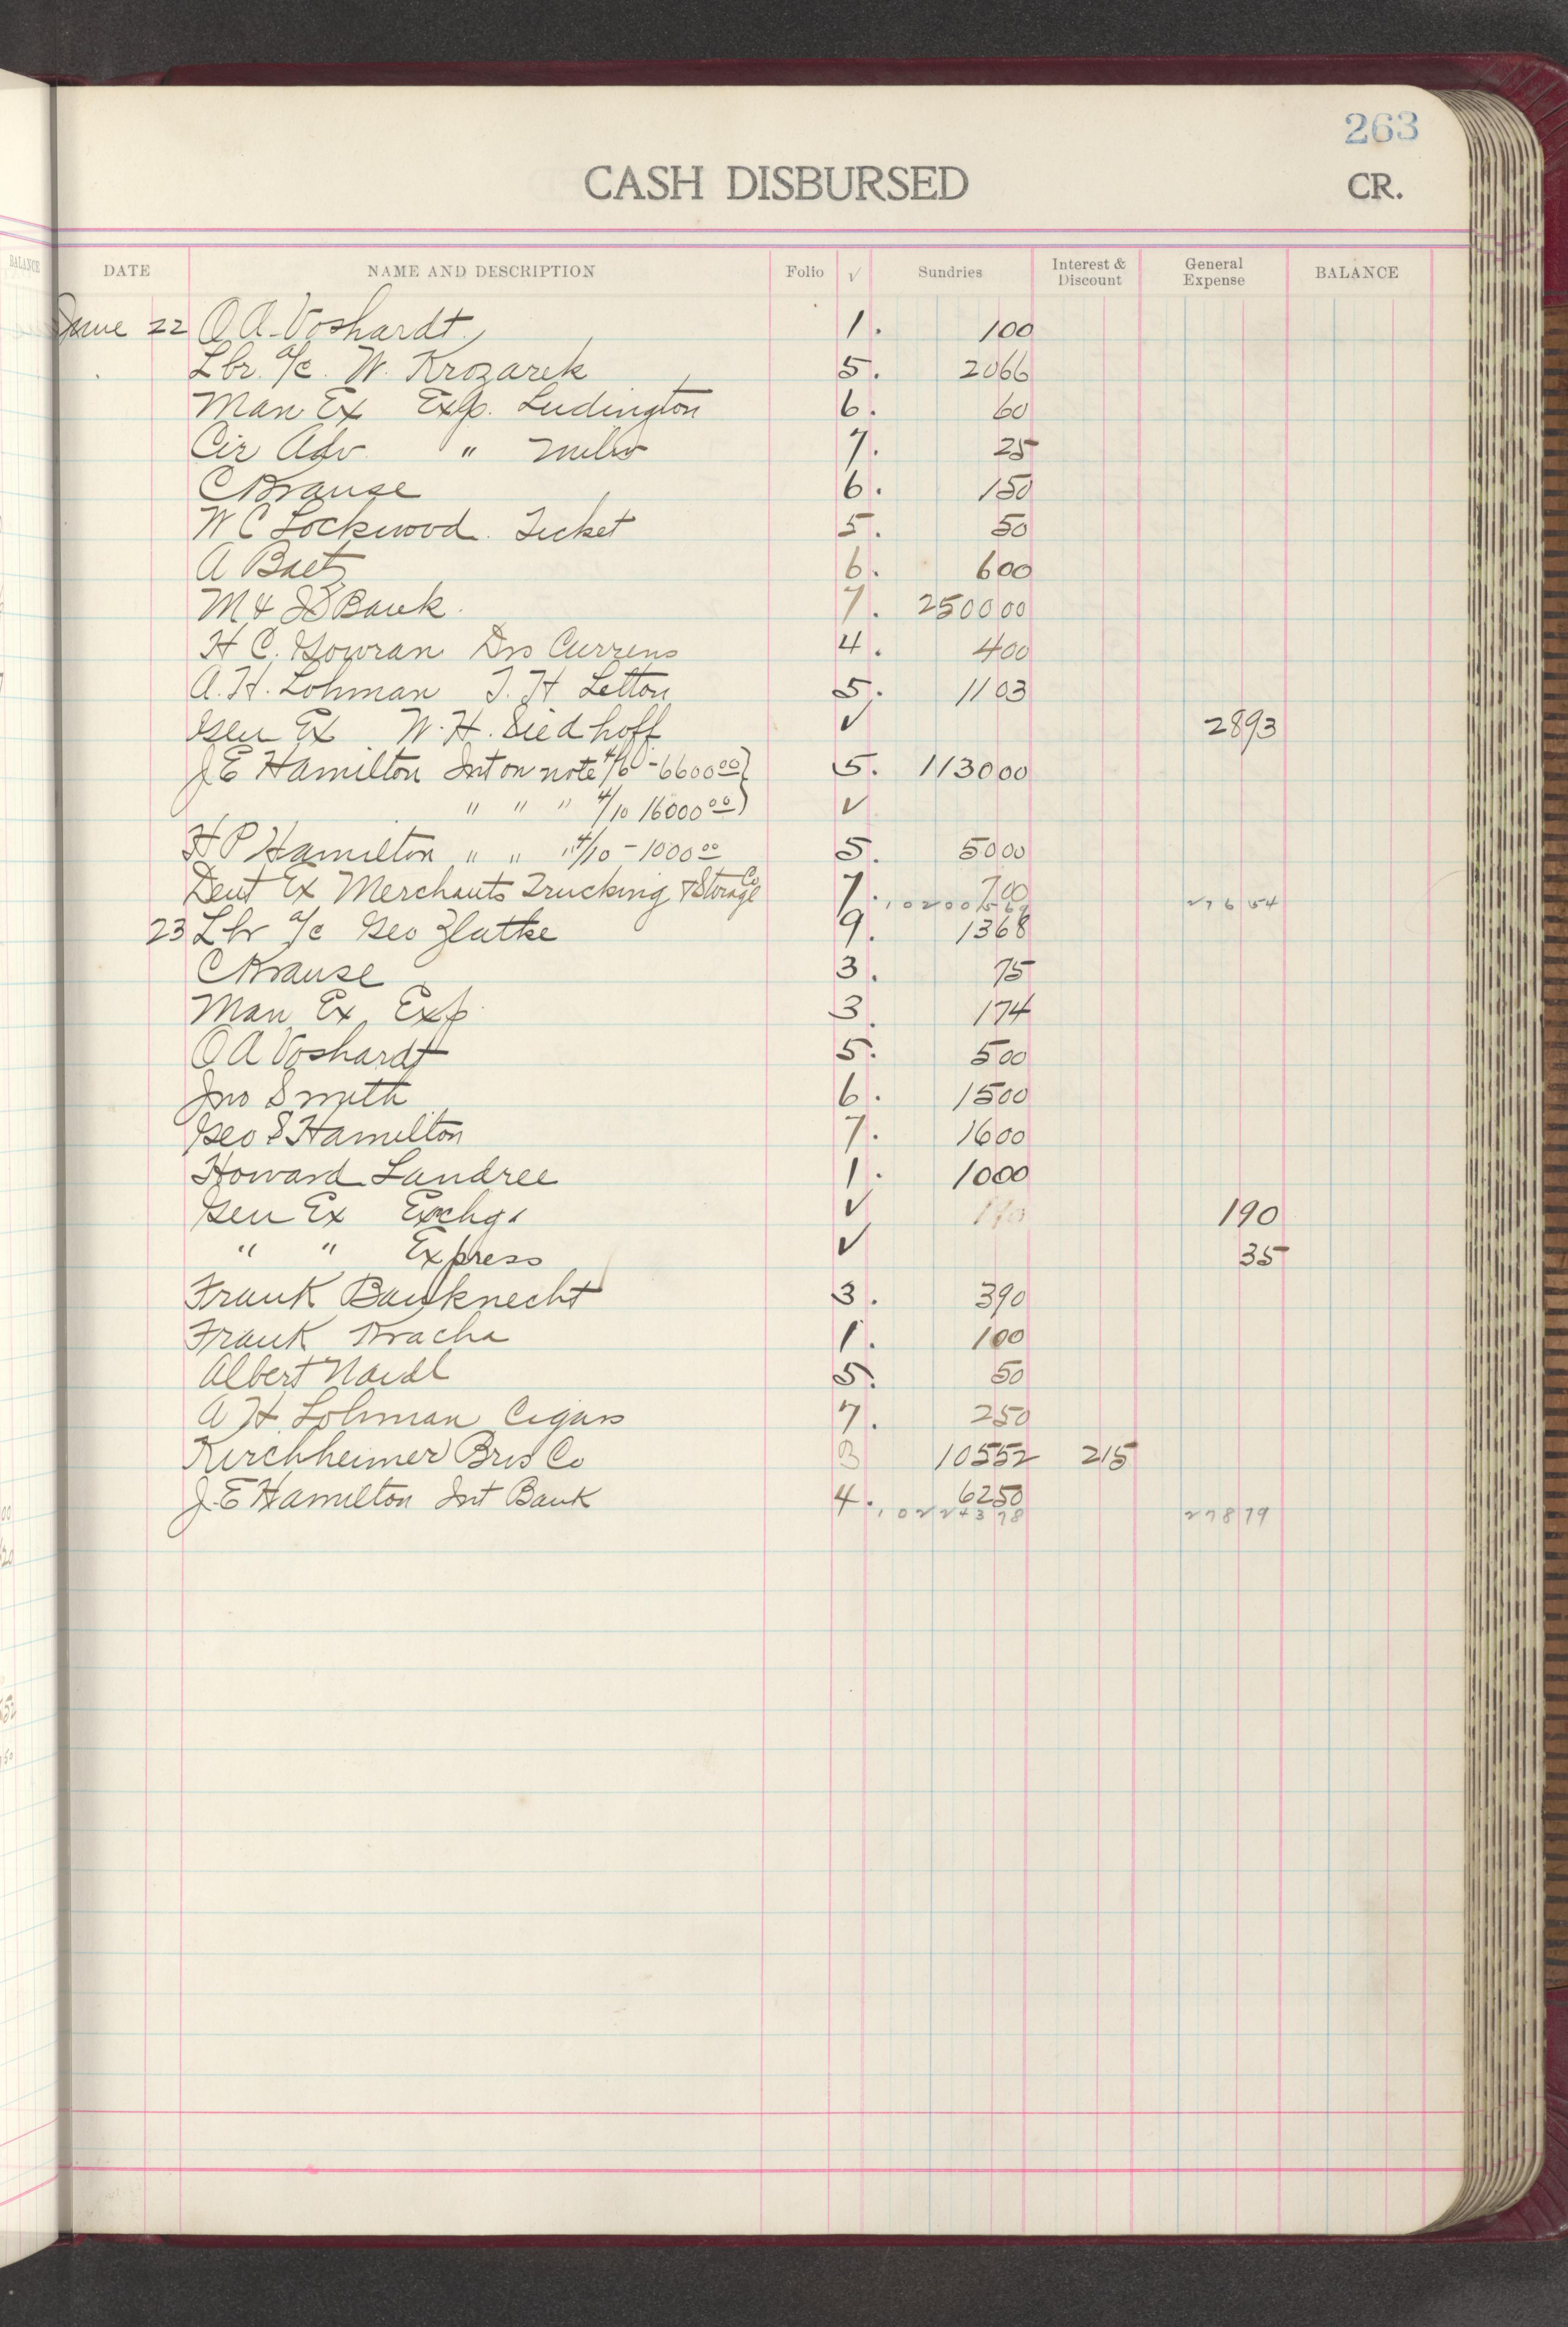 263
CASH DISBURSED CR.
BALANCE DATE NAME AND DESCRIPTION Folio √ Sundries Interest & Discount General Expense BALANCE
June 22 O A Voshardt 1. 100
Lbr a/c W. Krozarek 5. 2066
Man Ex Exp. Ludington 6. 60
Cir Adv. " Milw 7. 25
C Krause 6. 150
W C Lockwood Ticket 5. 50
A Baetz 6. 600
M & J S Bank. 7. 250000
H C. Gowran Drs Currens 4. 400
A. H. Lohman T. H Letton 5. 1103
Gen Ex W. H. Siedhoff √ 2893
J E Hamilton Int on note 4/6 - 6600 00 } 5. 113000
" " " 4/10 16000 00 } √
H P Hamilton " " " 4/10 - 1000 00 5. 5000
Dent Ex Merchants Trucking & Storage Co 7. 700
10200569 27654
23 Lbr a/c Geo Zlatke 9. 1368
C Krause 3. 75
Man Ex Exp 3. 174
O A Voshardt 5. 500
Jno Smith 6. 1500
Geo S Hamilton 7. 1600
Howard Landree 1. 1000
Gen Ex Exchg. √ 190 190
" " Express √ 35
Frank Bauknecht 3. 390
Frank Kracha 1. 100
Albert Naidl 5. 50
A H. Lohman Cigars 7. 250
Kirchheimer Bros Co 3 10552 215
J. E Hamilton Int Bank 4. 6250
10224378 27879